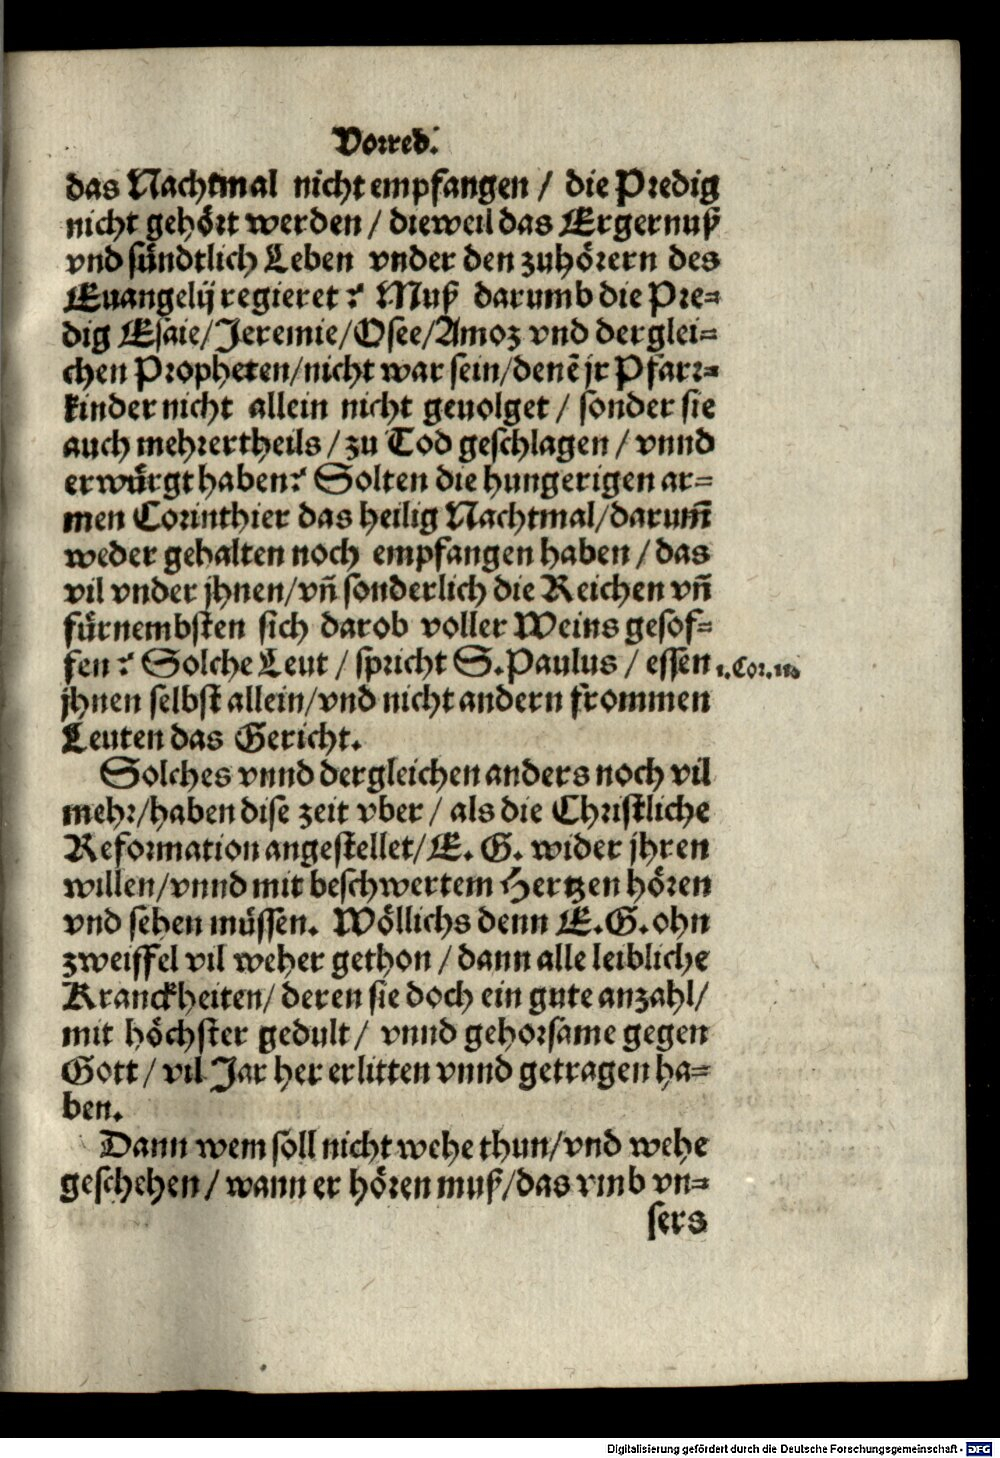 Vorred.
das Nachtmal nicht empfangen / die Predig
nicht gehoͤrt werden / dieweil das Ergernuß
vnd suͤndtlich Leben vnder den zuhoͤrern des
Euangelij regieret? Muß darumb die Pre⸗
dig Esaie/Jeremie/Osee/Amoz vnd derglei⸗
chen Propheten/nicht war sein/denẽ jr Pfarr⸗
kinder nicht allein nicht geuolget / sonder sie
auch mehrertheils / zu Tod geschlagen / vnnd
erwuͤrgt haben? Solten die hungerigen ar⸗
men Corinthier das heilig Nachtmal/darum̃
weder gehalten noch empfangen haben / das
vil vnder jhnen/vñ sonderlich die Reichen vñ
fuͤrnembsten sich darob voller Weins gesof⸗
fen? Solche Leut / spricht S. Paulus / essen
1. Cor. 11.
jhnen selbst allein/vnd nicht andern frommen
Leuten das Gericht.
Solches vnnd dergleichen anders noch vil
mehr/haben dise zeit vber / als die Christliche
Reformation angestellet/E. G. wider jhren
willen/vnnd mit beschwertem Hertzen hoͤren
vnd sehen muͤssen. Woͤllichs denn E. G. ohn
zweiffel vil weher gethon / dann alle leibliche
Kranckheiten/ deren sie doch ein gute anzahl/
mit hoͤchster gedult / vnnd gehorsame gegen
Gott / vil Jar her erlitten vnnd getragen ha⸗
ben.
Dann wem soll nicht wehe thun/vnd wehe
geschehen / wann er hoͤren muß/das vmb vn⸗
sers
Digitalisierung gefördert durch die Deutsche Forschungsgemeinschaft - DFG